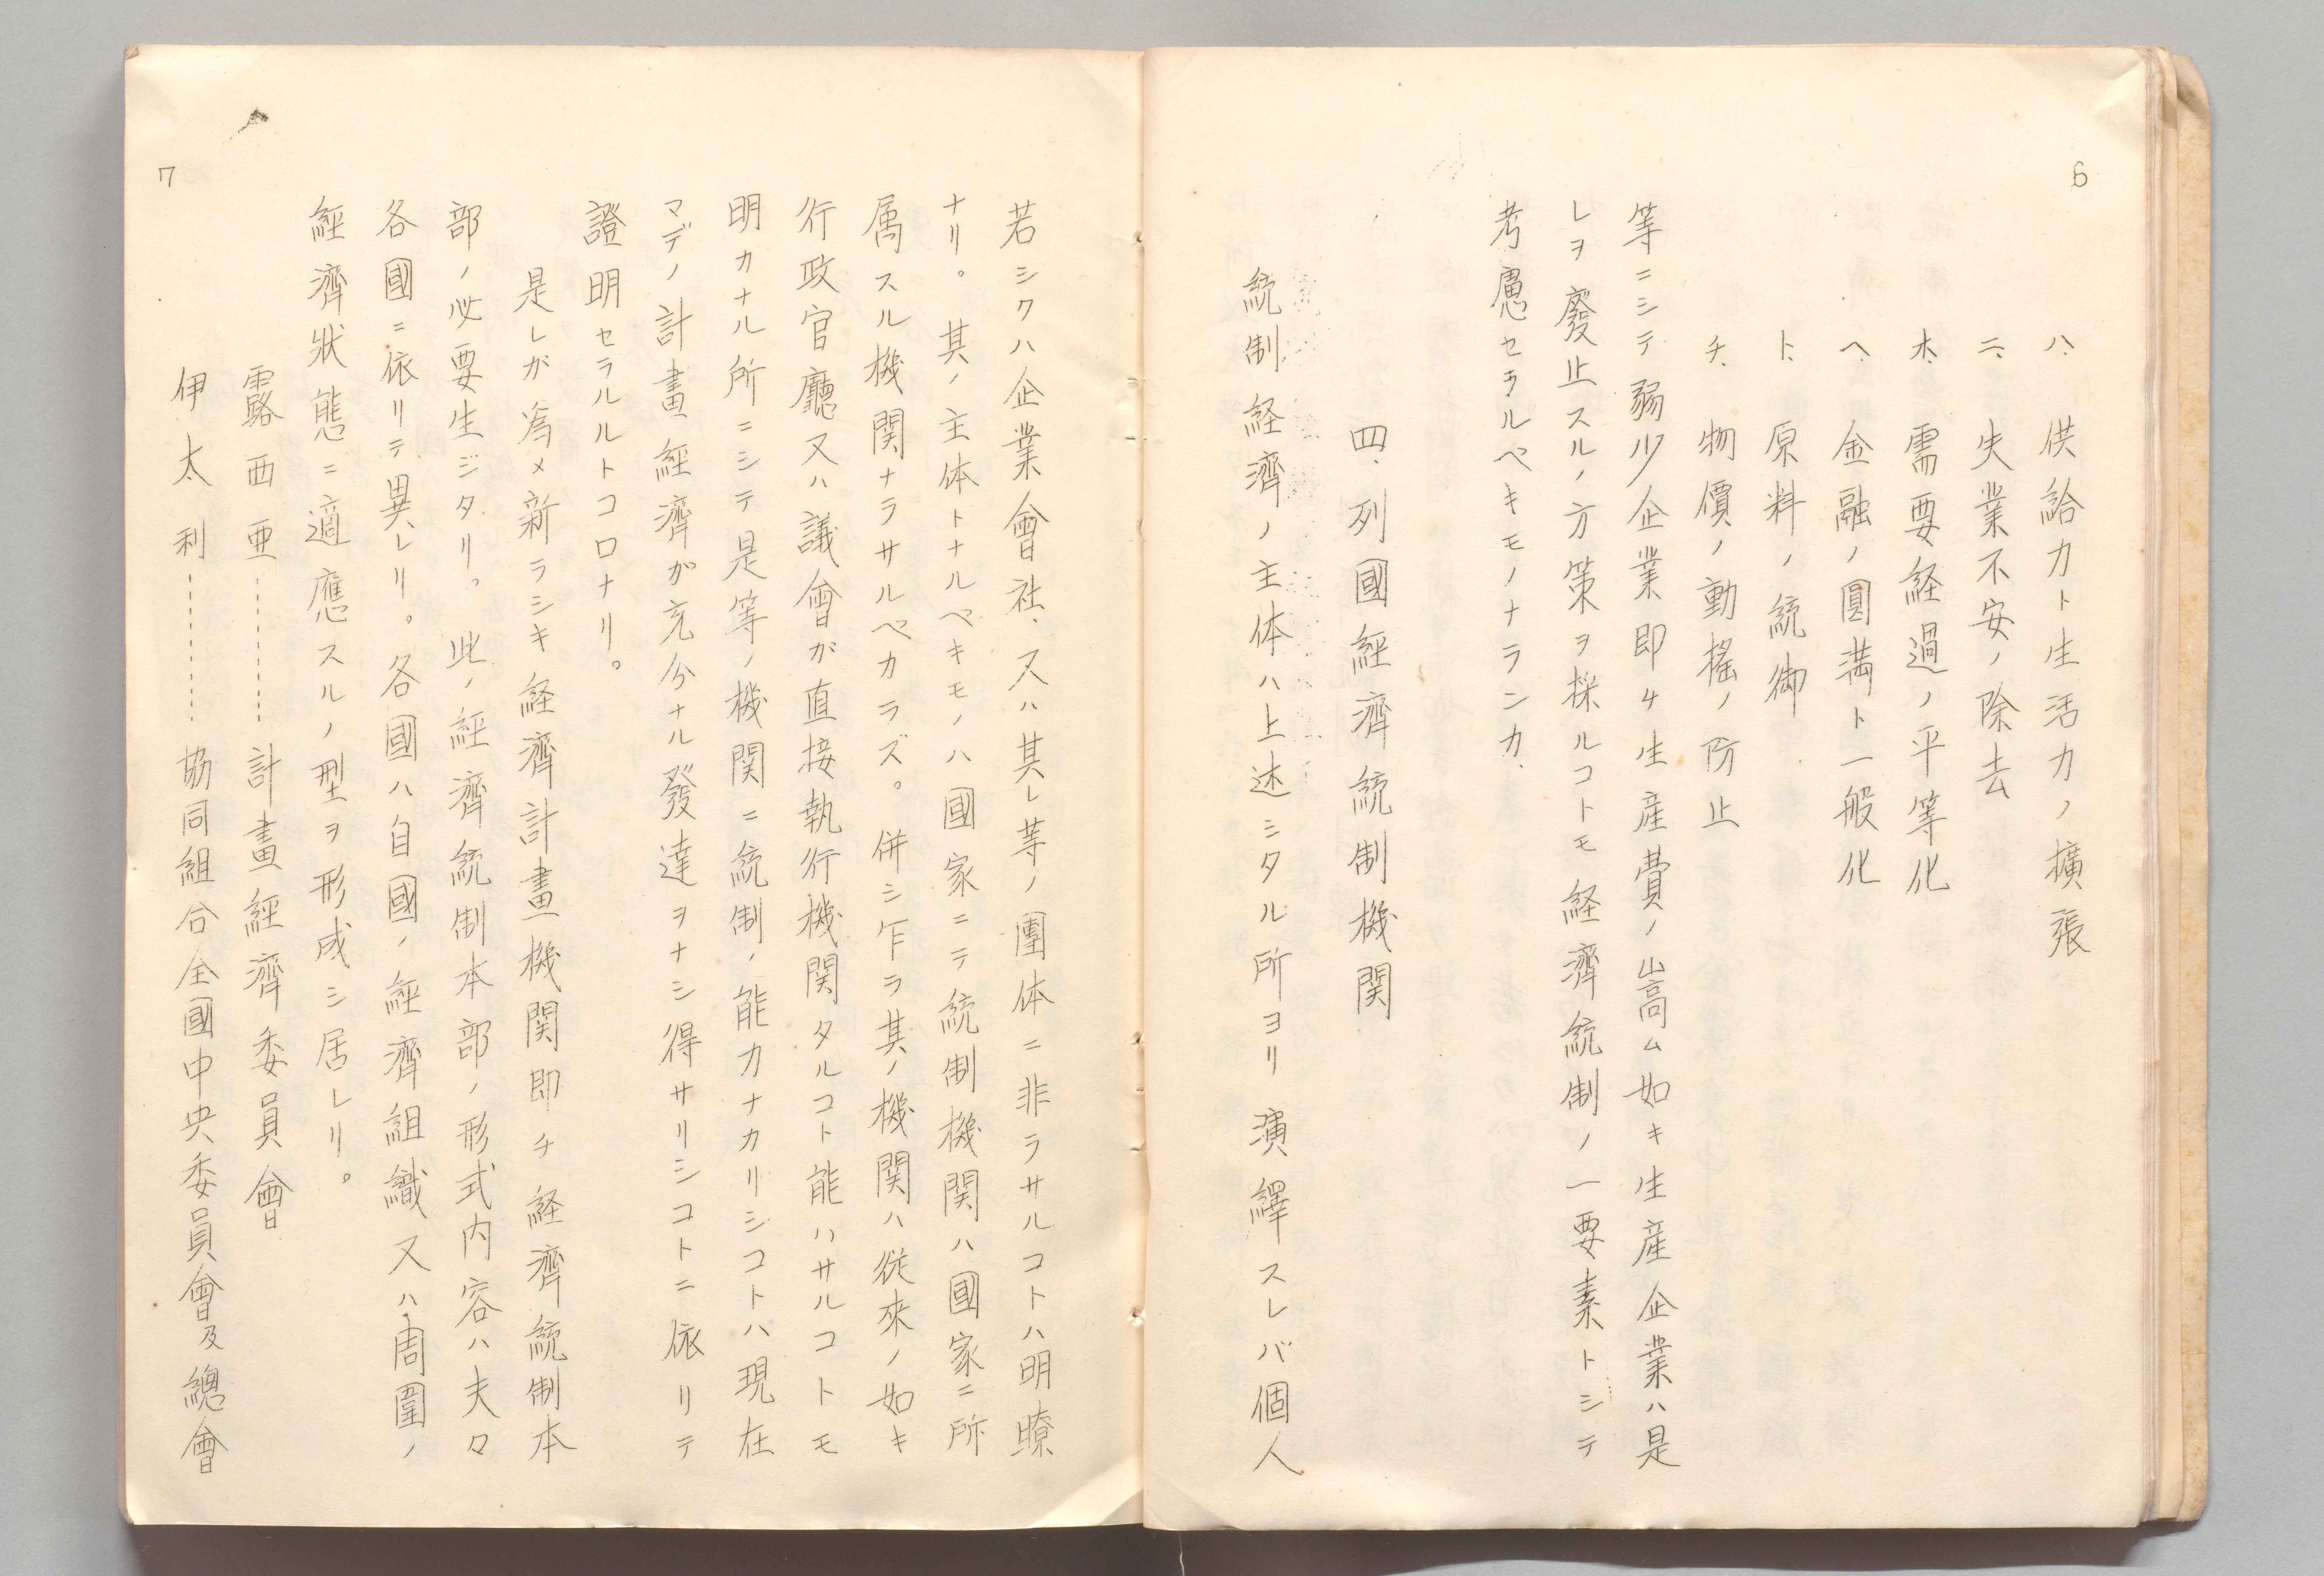 6
ハ、供給力ト生活力ノ擴張
ニ、失業不安ノ除去
ホ、需要経過ノ平等化
ヘ、金融ノ圓満ト一般化
ト、原料ノ統御
チ、物價ノ動搖ノ防止
等ニシテ弱少企業即チ生産費ノ嵩ム如キ生産企業ハ是
レヲ廢止スルノ方策ヲ採ルコトモ経濟統制ノ一要素トシテ
考慮セラルベキモノナランカ、
四、列國經濟統制機関
統制経濟ノ主体ハ上述シタル所ヨリ演繹スレバ個人
若シクハ企業會社、又ハ其レ等ノ團体ニ非ラサルコトハ明瞭
ナリ。其ノ主体トナルベキモノハ國家ニテ統制機関ハ國家ニ所
属スル機関ナラサルベカラズ。併シ乍ラ其ノ機関ハ従來ノ如キ
行政官廳又ハ議會が直接執行機関タルコト能ハサルコトモ
明カナル所ニシテ是等ノ機関ニ統制ノ能力ナカリシコトハ現在
マデノ計畫經濟が充分ナル發達ヲナシ得サリシコトニ依リテ
證明セラルルトコロナリ。
是レが為メ新ラシキ経濟計畫機関即チ経濟統制本
部ノ必要生ジタリ。此ノ經濟統制本部ノ形式内容ハ夫々
各國ニ依リテ異レリ。各國ハ自國ノ經濟組織又ハ周圍ノ
經濟狀態ニ適應スルノ型ヲ形成シ居レリ。
露西亜………計畫經濟委員會
伊太利………協同組合全國中央委員會及總會
7